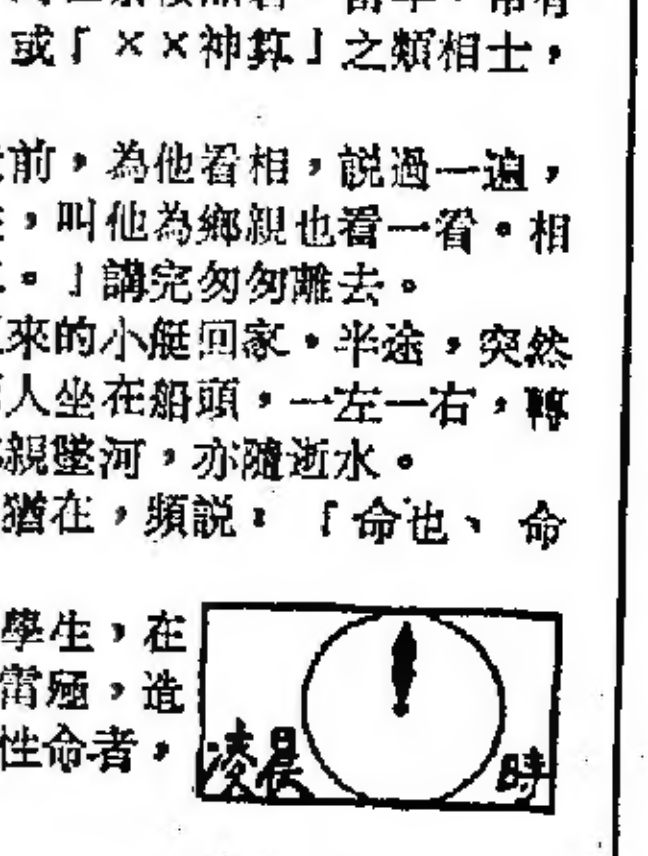 或「××神算」之類相士，
前，為他看相，說過一遍，
，叫他為鄉親也看一看。相
。」講完匆匆離去。
來的小艇回家。半途，突然
人坐在船頭，一左一右，轉
親墜河，亦隨逝水。
猶在，頻說：「命也、命
學生，在
雷殛，造
性命者，
凌晨 時